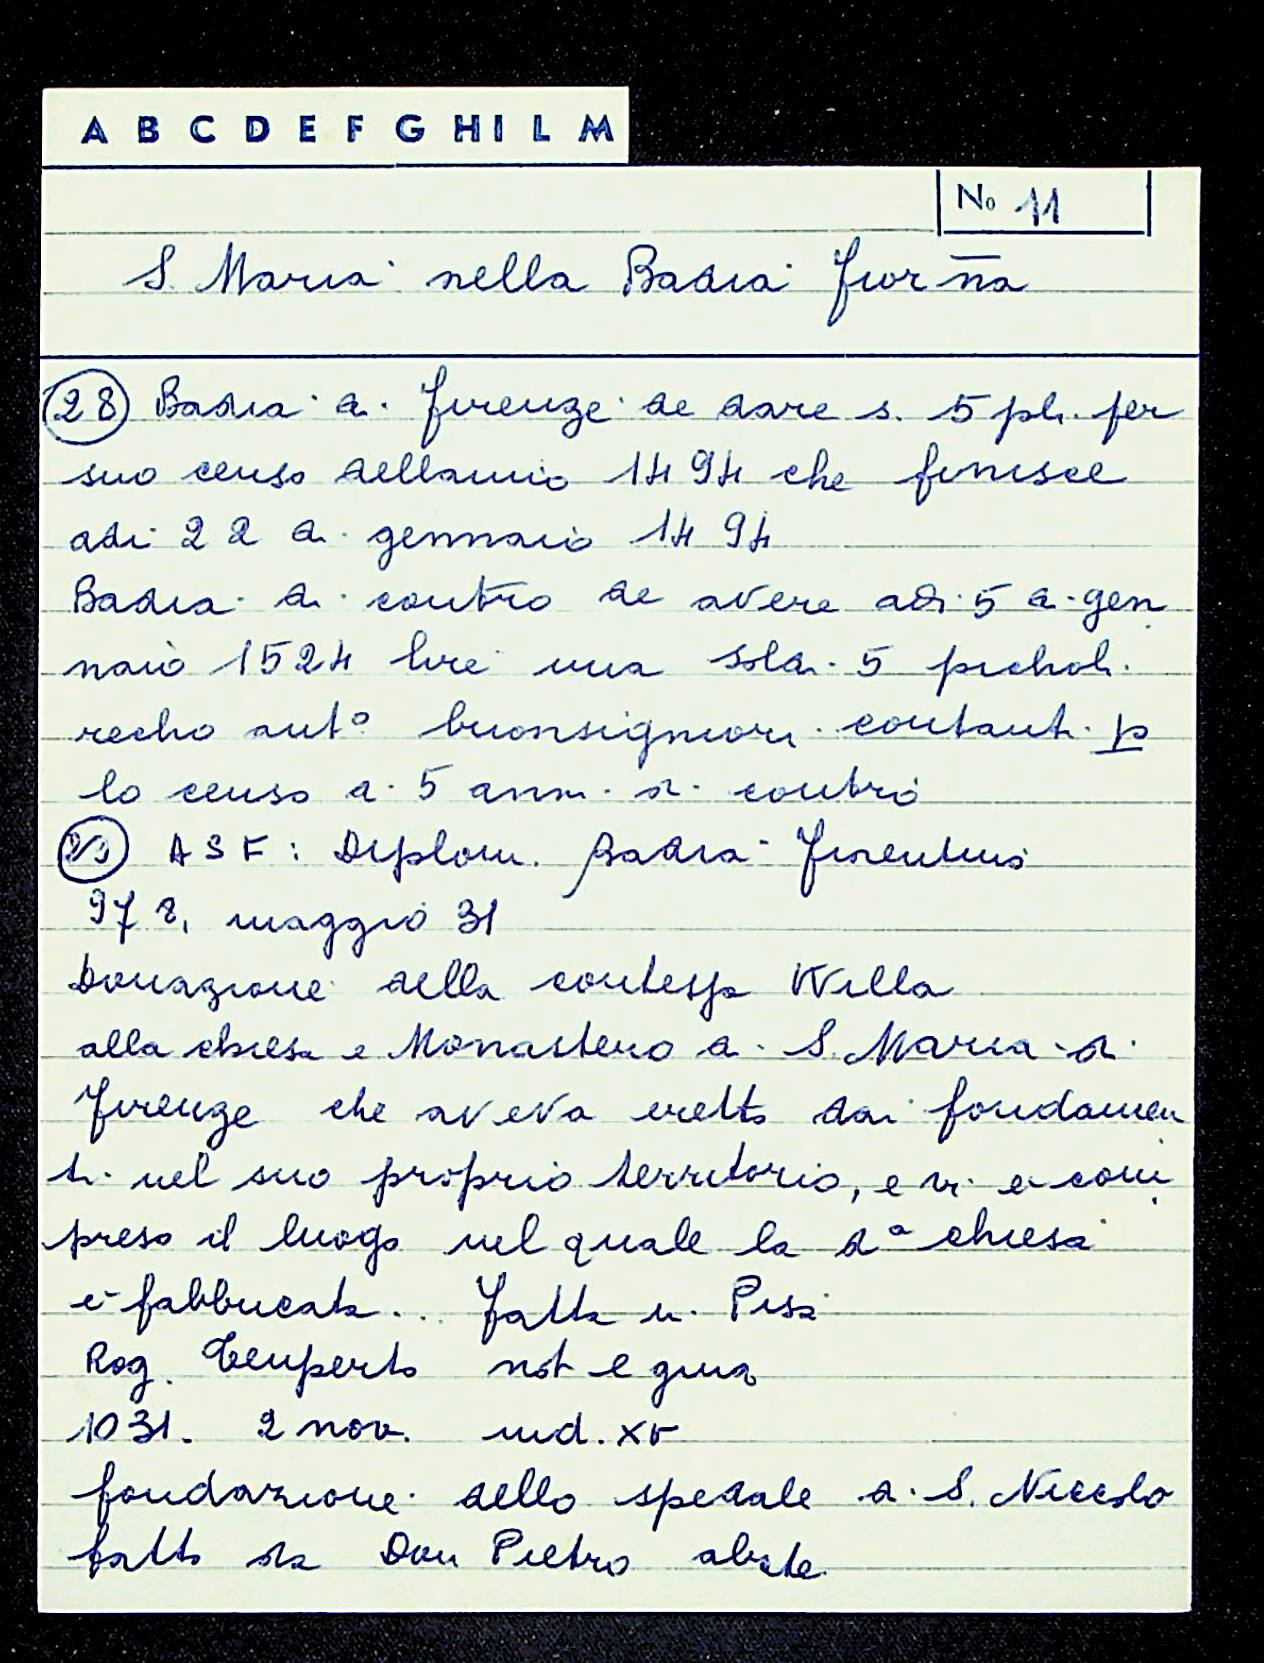 A B C D E F G H I L M
No 11
S. Maria nella Badia fior na
28 Badia di Firenze de dare s. 5 pli. per
suo censo dellanno 1494 che finisce
adi 22 di gennaio 1494
Badia di contro de avere adi 5 di gen
naio 1524 lire una soldi 5 picholi
recho anto buonsigniori contanti p
lo censo di 5 anni di contro
ASF: Diplom. Badia Fiorentina
978, maggio 31
Donazione della contessa Willa
alla chiesa e Monastero di S. Maria di
Firenze che aveva eretto dai fondamen
ti nel suo proprio territorio, e vi è com
preso il luogo nel quale la da chiesa
è fabbricata... fatta in Pisa
Rog. Teuperto not e giud
1031. 2 nov. ind. XV
fondazione dello spedale di S. Niccolo
fatto da Don Pietro abate